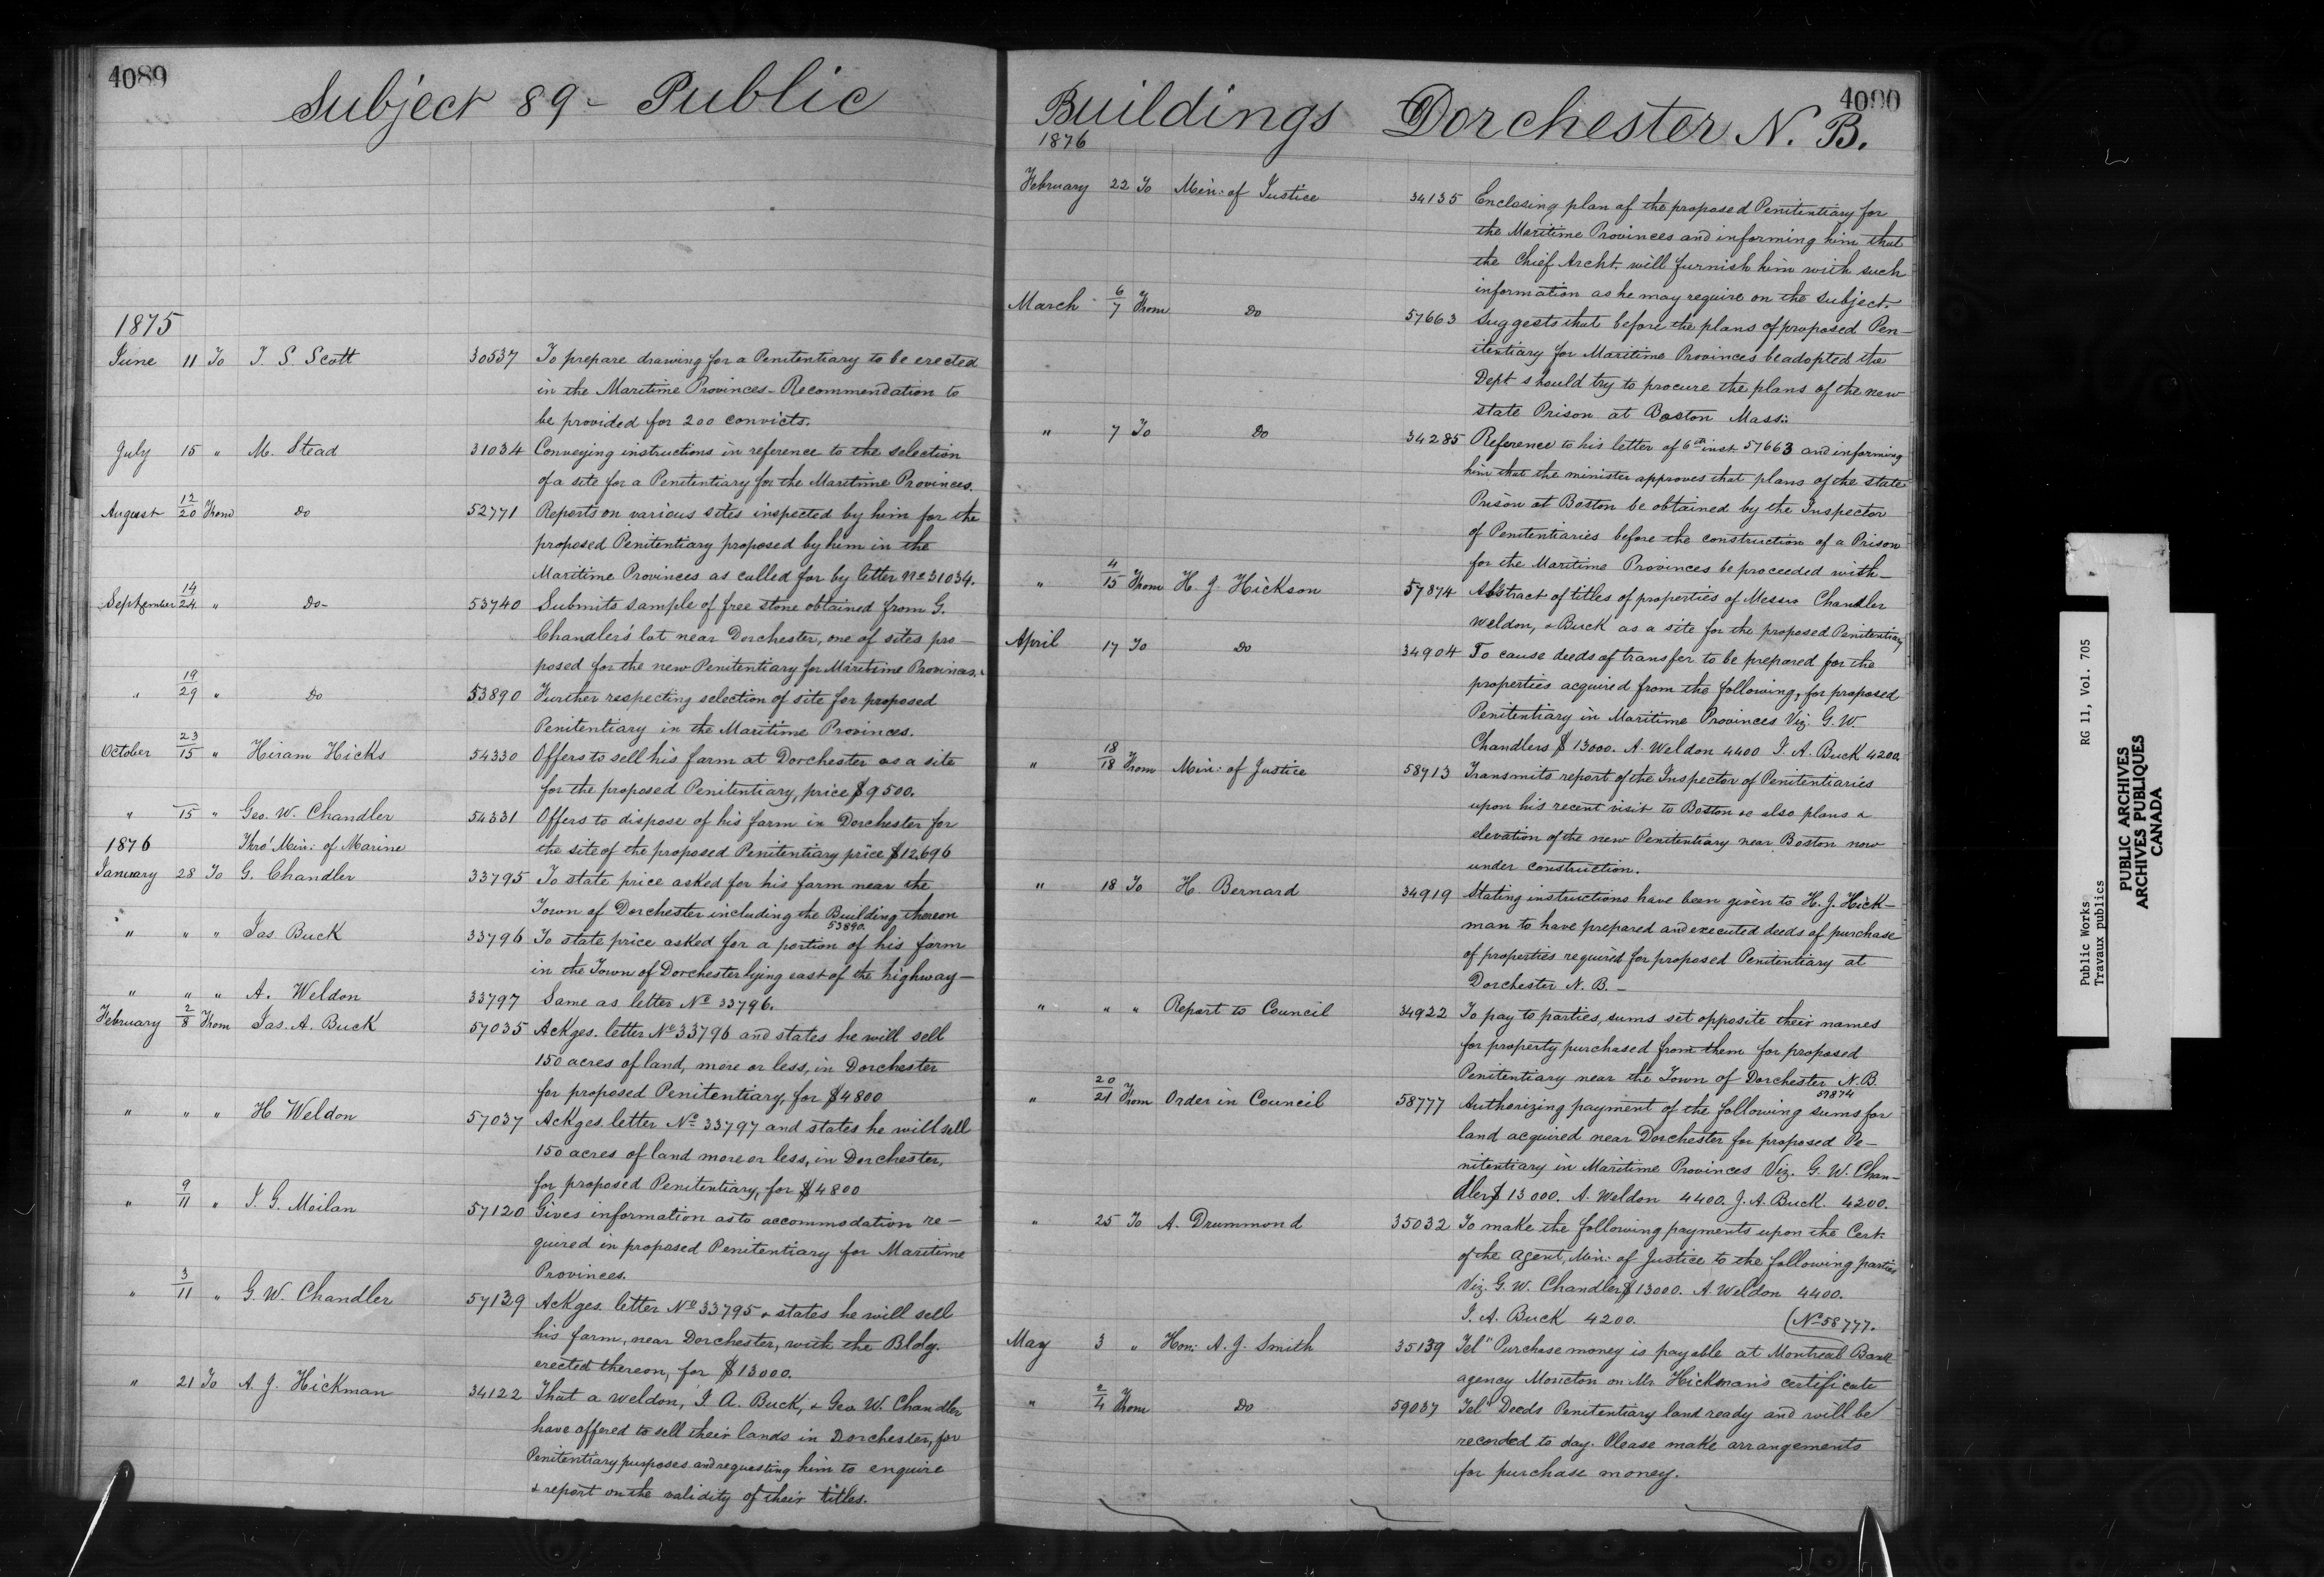 4089
Subject 89 - Public
1875
June 11 To T. S Scott 30537 To prepare drawing for a Penitentiary to be erected
in the Maritime Provinces - Recommendation to
be provided for 200 convicts.
July 15 " M. Stead 31034 Conveying instructions in reference to the selection
of a site for a Penitentiary for the Maritime Provinces.
August 12/20 From Do 52771 Reports on various sites inspected by him for the
proposed Penitentiary proposed by him in the
Maritime Provinces as called for by letter No 31034.
September 14/24 " Do- 53740 Submits sample of free stone obtained from G.
Chandler's lot near Dorchester, one of sites pro-
posed for the new Penitentiary for Maritime Provinces.
" 19/29 " Do 53890 Further respecting selection of site for proposed
Penitentiary in the Maritime Provinces.
October 23/15 " Hiram Hicks 54330 Offers to sell his farm at Dorchester as a site
for the proposed Penitentiary, price $9500.
" 15 " Geo. W. Chandler 54331 Offers to dispose of his farm in Dorchester for
1876 Thro' Min: of Marine the site of the proposed Penitentiary price $12,696
January 28 To G. Chandler 33795 To state price asked for his farm near the
Town of Dorchester including the Building thereon
53890.
" " " Jas Buck 33796 To state price asked for a portion of his farm
in the Town of Dorchester lying east of the highway-
" " " A. Weldon 33797 Same as letter No 33796.
February 2/8 From Jas. A. Buck 57035 Ackges. letter No 33796 and states he will sell
150 acres of land, more or less, in Dorchester
for proposed Penitentiary, for $4800
" " " H Weldon 57037 Ackges. letter No 33797 and states he will sell
150 acres of land more or less, in Dorchester,
for proposed Penitentiary, for $4800
" 9/11 " J. G. Moilan 57120 Gives information as to accommodation re-
quired in proposed Penitentiary for Maritime
Provinces.
" 3/11 " G. W. Chandler 57129 Ackges. letter No 33795 & states he will sell
his farm, near Dorchester, with the Bldg.
erected thereon, for $13000.
" 21 To A. J. Hickman 34122 That a Weldon, J. A. Buck, & Geo. W. Chandler
have offered to sell their lands in Dorchester, for
Penitentiary purposes and requesting him to enquire
& report on the validity of their titles.
4090
Buildings Dorchester N. B.
1876
February 22 To Min: of Justice 34135 Enclosing plan of the proposed Penitentiary for
the Maritime Provinces and informing him that
the Chief Archt. will furnish him with such
information as he may require on the subject.
March 6/7 From Do 57663 Suggests that before the plans of proposed Pen-
itentiary for Maritime Provinces be adopted the
Dept should try to procure the plans of the new
state Prison at Boston Mass:
" 7 To Do 34285 Reference to his letter of 6th inst 57663 and informing
him that the minister approves that plans of the state
Prison at Boston be obtained by the Inspector
of Penitentiaries before the construction of a Prison
for the Maritime Provinces be proceeded with-
" 4/15 From H. J. Hickson 57874 Abstract of titles of properties of Messrs Chandler
Weldon, & Buck as a site for the proposed Penitentiary
April 17 To Do 34904 To cause deeds of transfer to be prepared for the
properties acquired from the following, for proposed
Penitentiary in Maritime Provinces Viz. G. W.
Chandlers $13000. A. Weldon 4400 J. A. Buck 4200.
" 18/18 From Min: of Justice 58713 Transmits report of the Inspector of Penitentiaries
upon his recent visit to Boston as also plans &
elevation of the new Penitentiary near Boston now
under construction.
" 18 To H. Bernard 34919 Stating instructions have been given to H. J. Hick-
man to have prepared and executed deeds of purchase
of properties required for proposed Penitentiary at
Dorchester N. B. -
" " " Report to Council 34922 To pay to parties, sums set opposite their names
for property purchased from them for proposed
Penitentiary near the Town of Dorchester N. B.
57874
" 20/21 From Order in Council 58777 Authorizing payment of the following sums for
land acquired near Dorchester for proposed Pe-
nitentiary in Maritime Provinces Viz. G. W. Chan-
dler $13000. A. Weldon 4400. J. A. Buck. 4200.
" 25 To A. Drummond 35032 To make the following payments upon the Cert.
of the Agent, Min: of Justice to the following parties
Viz. G. W. Chandler $13000. A. Weldon 4400.
J. A. Buck 4200. (No 58777.
May 3 " Hon: A. J. Smith 35139 Tel" Purchase money is payable at Montreal Bank
agency Moncton on Mr Hickman's certificate
" 2/4 From Do 59037 Tel" Deeds Penitentiary land ready and will be
recorded to day. Please make arrangements
for purchase money.
Public Works RG 11, Vol. 705
Travaux publics
PUBLIC ARCHIVES
ARCHIVES PUBLIQUES
CANADA